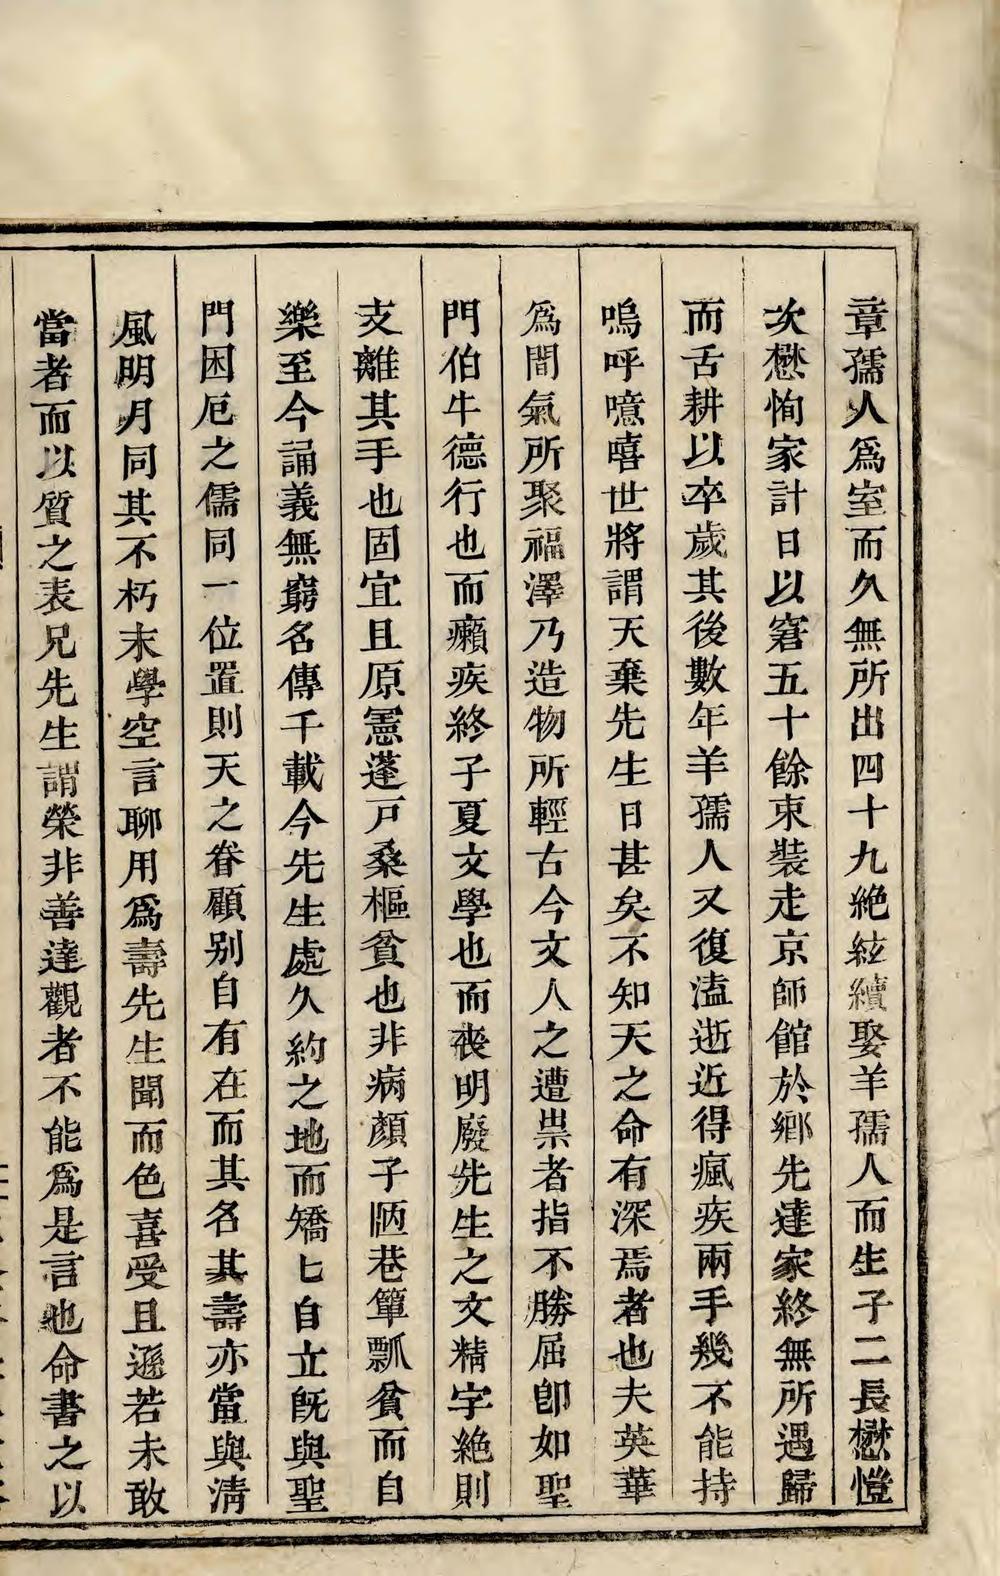 章孺人爲室而久無所出四十九絶絃續娶羊孺人而生子二長懋愷
次懋恂家計日以窘五十餘束裝走京師館於鄉先達家終無所遇歸
而舌耕以卒歲其後數年羊孺人又復溘逝近得瘋疾兩手幾不能持
嗚呼噫嘻世將謂天棄先生日甚矣不知天之命有深焉者也夫英華
爲間氣所聚福澤乃造物所輕古今文人之遭祟者指不勝屈卽如聖
門伯牛德行也而癩疾終子夏文學也而喪明廢先生之文精字絶則
支離其手也固宜且原憲蓬戸桑樞貧也非病顏子陋巷簞瓢貧而自
樂至今誦義無窮名傳千載今先生處久約之地而矯匕自立旣與聖
門困厄之儒同一位置則天之眷顧别自有在而其名其壽亦當與清
風明月同其不朽末學空言聊用爲壽先生聞而色喜受且遜若未敢
當者而以質之表兄先生謂榮非善達觀者不能爲是言也命書之以